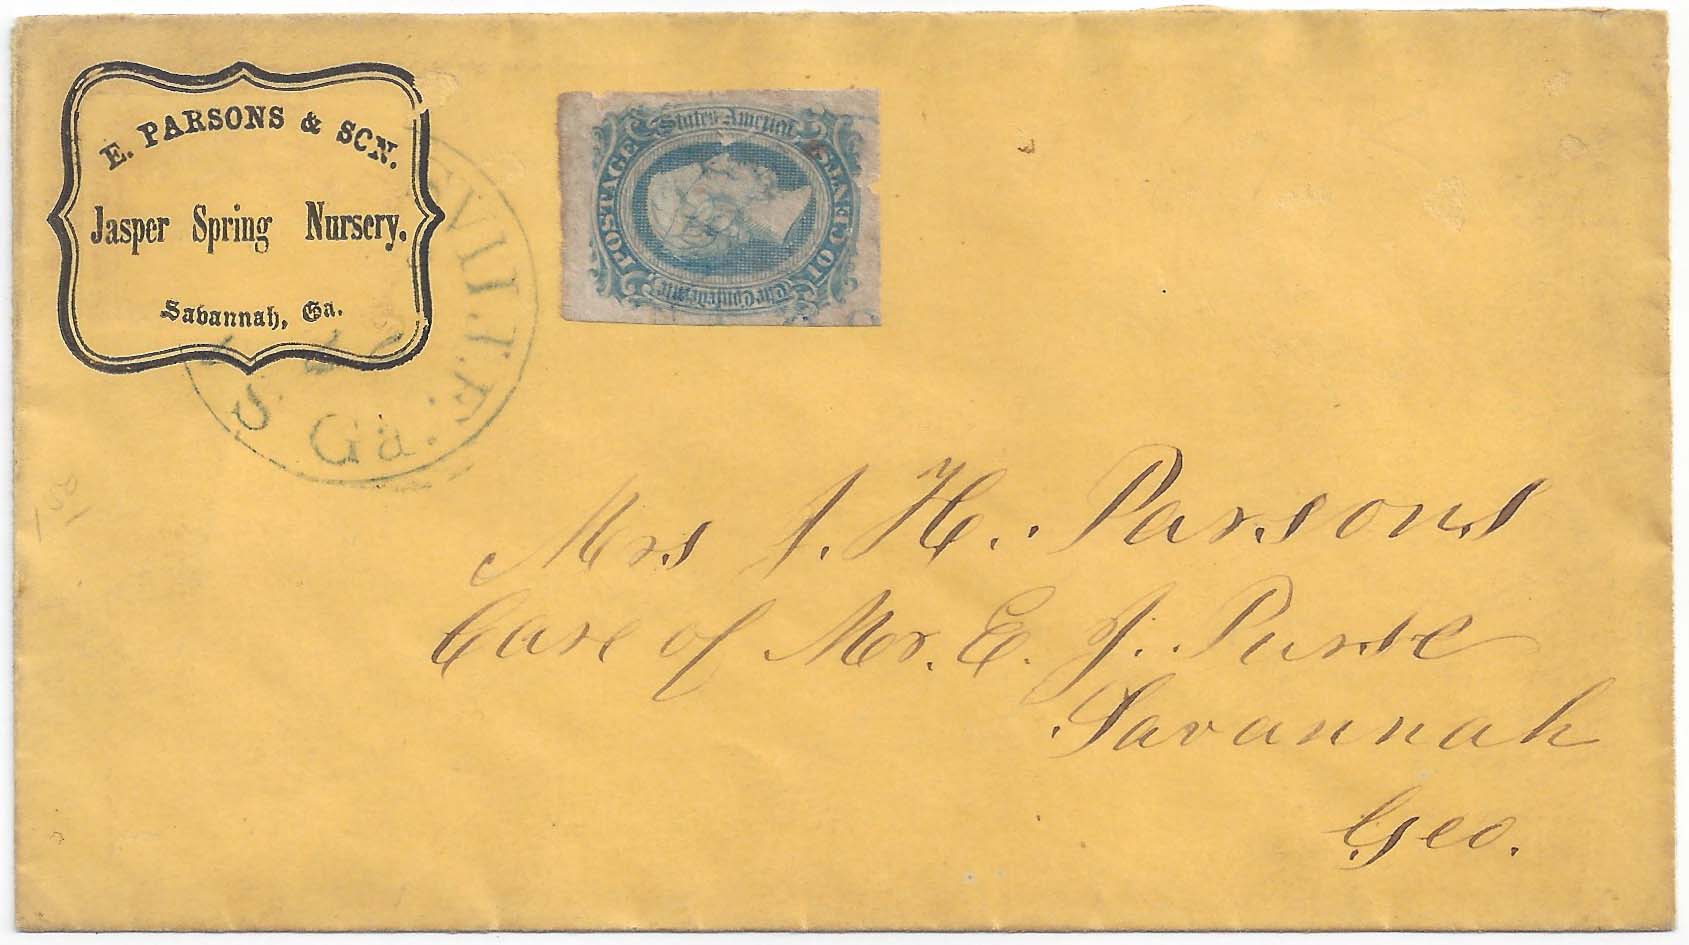 E. PARSONS & SON.
Jasper Spring Nursery,
Savannah, Ga.
SVILLE
Ga.
The Confederate
States America
POSTAGE
10 CENTS
150
Mrs J. H. Parsons
Care of Mr. E. J. Purse
Savannah
Geo.